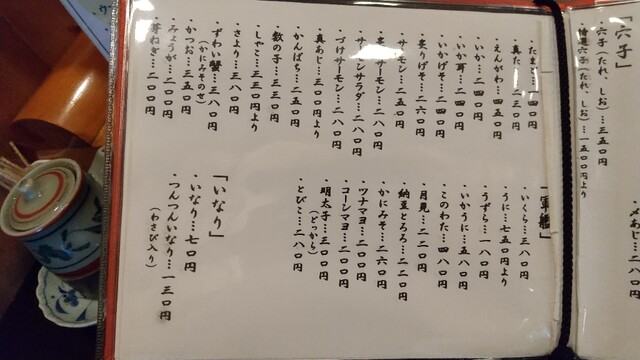 「穴子」
穴子(たれ、しお)…三五〇円
特選穴子(たれ、しお)…一五〇〇円より
たまご…一四〇円
真た…二三〇円
・えんがわ…四五〇円
・いか…二四〇円
・いか耳…二四〇円
・いかげそ…二四〇円
・炙りげそ…二六〇円
・サーモン…二五〇円
サーモン…二八〇円
サーモンサラダ…二八〇円
・づけサーモン…二八〇円
・真あじ…三〇〇円より
・かんぱち…二五〇円
・数の子…三三〇円
・しゃこ…三三〇円より
・さより…三八〇円
・ずわい蟹…三八〇円
(かにみそのせ)
・かつお…三五〇円
・みょうが…二〇〇円
・芽ねぎ…二〇〇円
軍艦」
・いくら…三八〇円
・うに…七五〇円より
・うずら…一八〇円
・いかうに…五八〇円
・このわた…四八〇円
・月見…二二〇円
・納豆とろろ…二二〇円
・かにみそ…二六〇円
・ツナマヨ…二〇〇円
・コーンマヨ…二〇〇円
・明太子…三〇〇円
(どっから)
・とびこ…二八〇円
「いなり」
・いなり…七〇円
・つんつんいなり…一三〇円
(わさび入り)